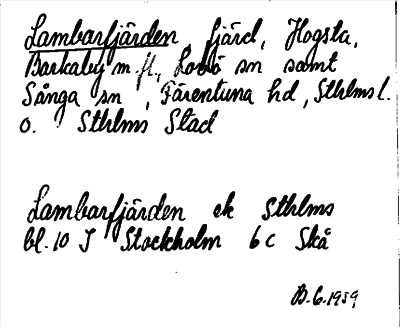 Lambarfjärden fjärd, Hogsta,
Barkaby m.fl., Lovö sn samt
Sånga sn, Färentuna hd, Sthlms l.
o. Sthlms Stad
Lambarfjärden ek Sthlms
bl. 10 J Stockholm 6 c Skå
B.G. 1959